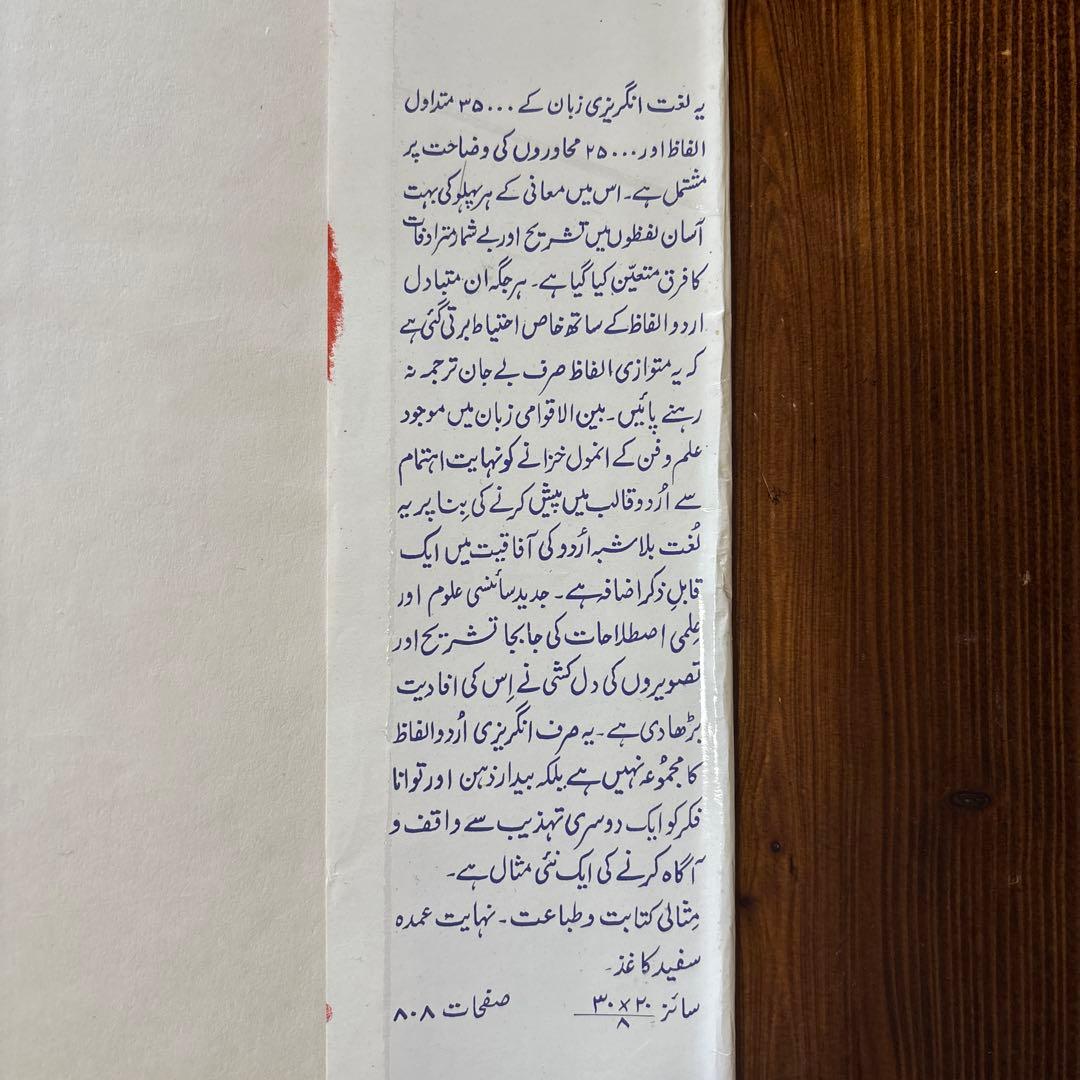 یہ لغت انگریزی زبان کے ۳۵۰۰۰ متداول
الفاظ اور ۲۵۰۰۰ محاوروں کی وضاحت پر
مشتمل ہے۔ اس میں معانی کے ہر پہلو کی بہت
آسان لفظوں میں تشریح اور بے شمار مترادفات
کا فرق متعیّن کیا گیا ہے۔ ہر جگہ ان متبادل
اردو الفاظ کے ساتھ خاص احتیاط برتی گئی ہے
کہ یہ متوازی الفاظ صرف بے جان ترجمہ نہ
رہنے پائیں۔ بین الاقوامی زبان میں موجود
علم و فن کے انمول خزانے کو نہایت اہتمام
سے اُردو قالب میں پیش کرنے کی بِنا پر یہ
لُغت بلاشبہ اُردو کی آفاقیت میں ایک
قابلِ ذکر اضافہ ہے۔ جدید سائنسی علوم اور
عِلمی اصطلاحات کی جا بجا تشریح اور
تصویروں کی دل کشی نے اِس کی افادیت
بڑھا دی ہے۔ یہ صرف انگریزی اُردو الفاظ
کا مجمُوعہ نہیں ہے بلکہ بیدار ذہن اور توانا
فکر کو ایک دوسری تہذیب سے واقف و
آگاہ کرنے کی ایک نئی مثال ہے۔
مِثالی کتابت و طباعت۔ نہایت عمدہ
سفید کاغذ۔
سائز ۲۰×۳۰/۸ صفحات ۸۰۸